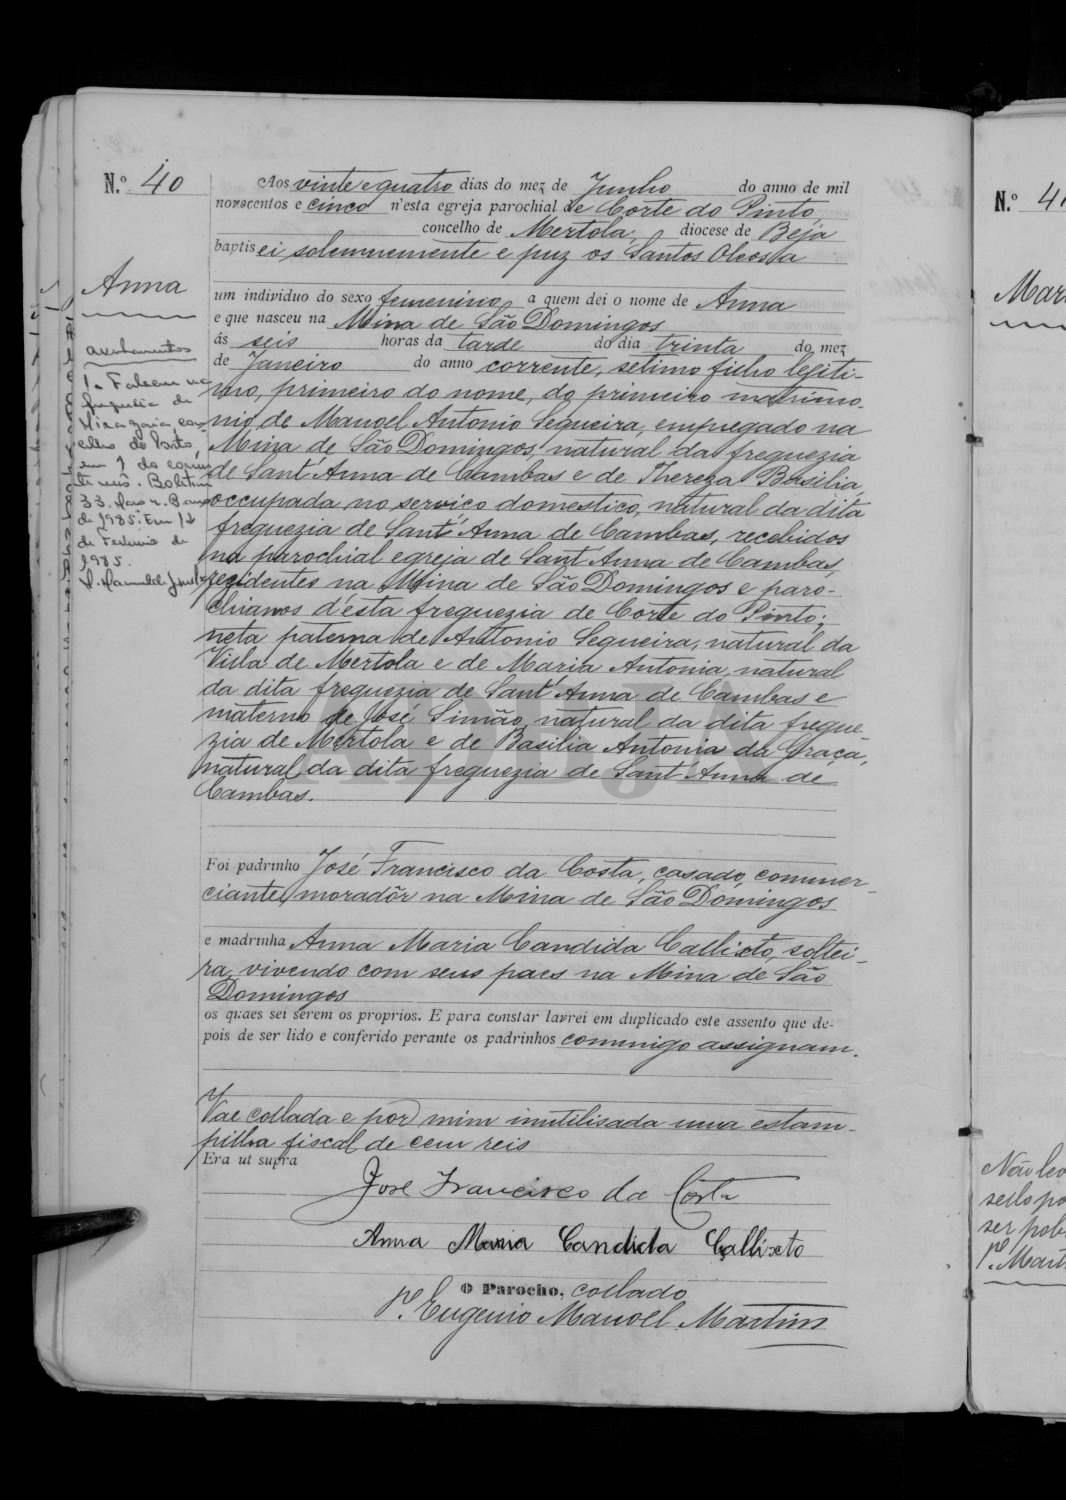 N.º 40
Aos vinte e quatro dias do mez de Junho do anno de mil
novecentos e cinco n'esta egreja parochial de Corte do Pinto,
concelho de Mertola, diocese de Beja
baptisei solemnemente e puz os Santos Oleos a
Anna
um individuo do sexo femenino a quem dei o nome de Anna
e que nasceu na Mina de São Domingos
ás seis horas da tarde do dia trinta do mez
de Janeiro do anno corrente, setimo filho legiti-
mo, primeiro do nome, do primeiro matrimo-
nio de Manoel Antonio Sequeira, empregado na
Mina de São Domingos, natural da freguezia
de Sant'Anna de Cambas e de Thereza Basilia,
occupada no serviço domestico, natural da dita
freguezia de Sant'Anna de Cambas, recebidos
na parochial egreja de Sant'Anna de Cambas,
rezidentes na Mina de São Domingos e paro-
chianos d'esta freguezia de Corte do Pinto;
neta paterna de Antonio Sequeira, natural da
Villa de Mertola e de Maria Antonia, natural
da dita freguezia de Sant'Anna de Cambas e
materna de José Simão, natural da dita fregue-
zia de Mertola e de Basilia Antonia da Graça,
natural da dita freguezia de Sant'Anna de
Cambas.
averbamentos
1. Faleceu na
freguesia de
Miragaia, con-
celho do Porto,
em 7 do corren
te mês. Boletim
33.
de 1985. Em 12
de Fevereiro de
1985.
Foi padrinho José Francisco da Costa, casado, commer-
ciante, moradôr na Mina de São Domingos
e madrinha Anna Maria Candida Callixto, soltei-
ra, vivendo com seus paes na Mina de São
Domingos
os quaes sei serem os proprios. E para constar lavrei em duplicado este assento que de-
pois de ser lido e conferido perante os padrinhos commigo assignam.
Vae collada e por mim inutilisada uma estam-
pilha fiscal de cem reis
Era ut supra
José Francisco da Costa
Anna Maria Candida Callixto
O Parocho, collado
P.e Eugenio Manoel Martins
N.º 41
Mar
Não lev
sello po
ser pob
P.e Mart